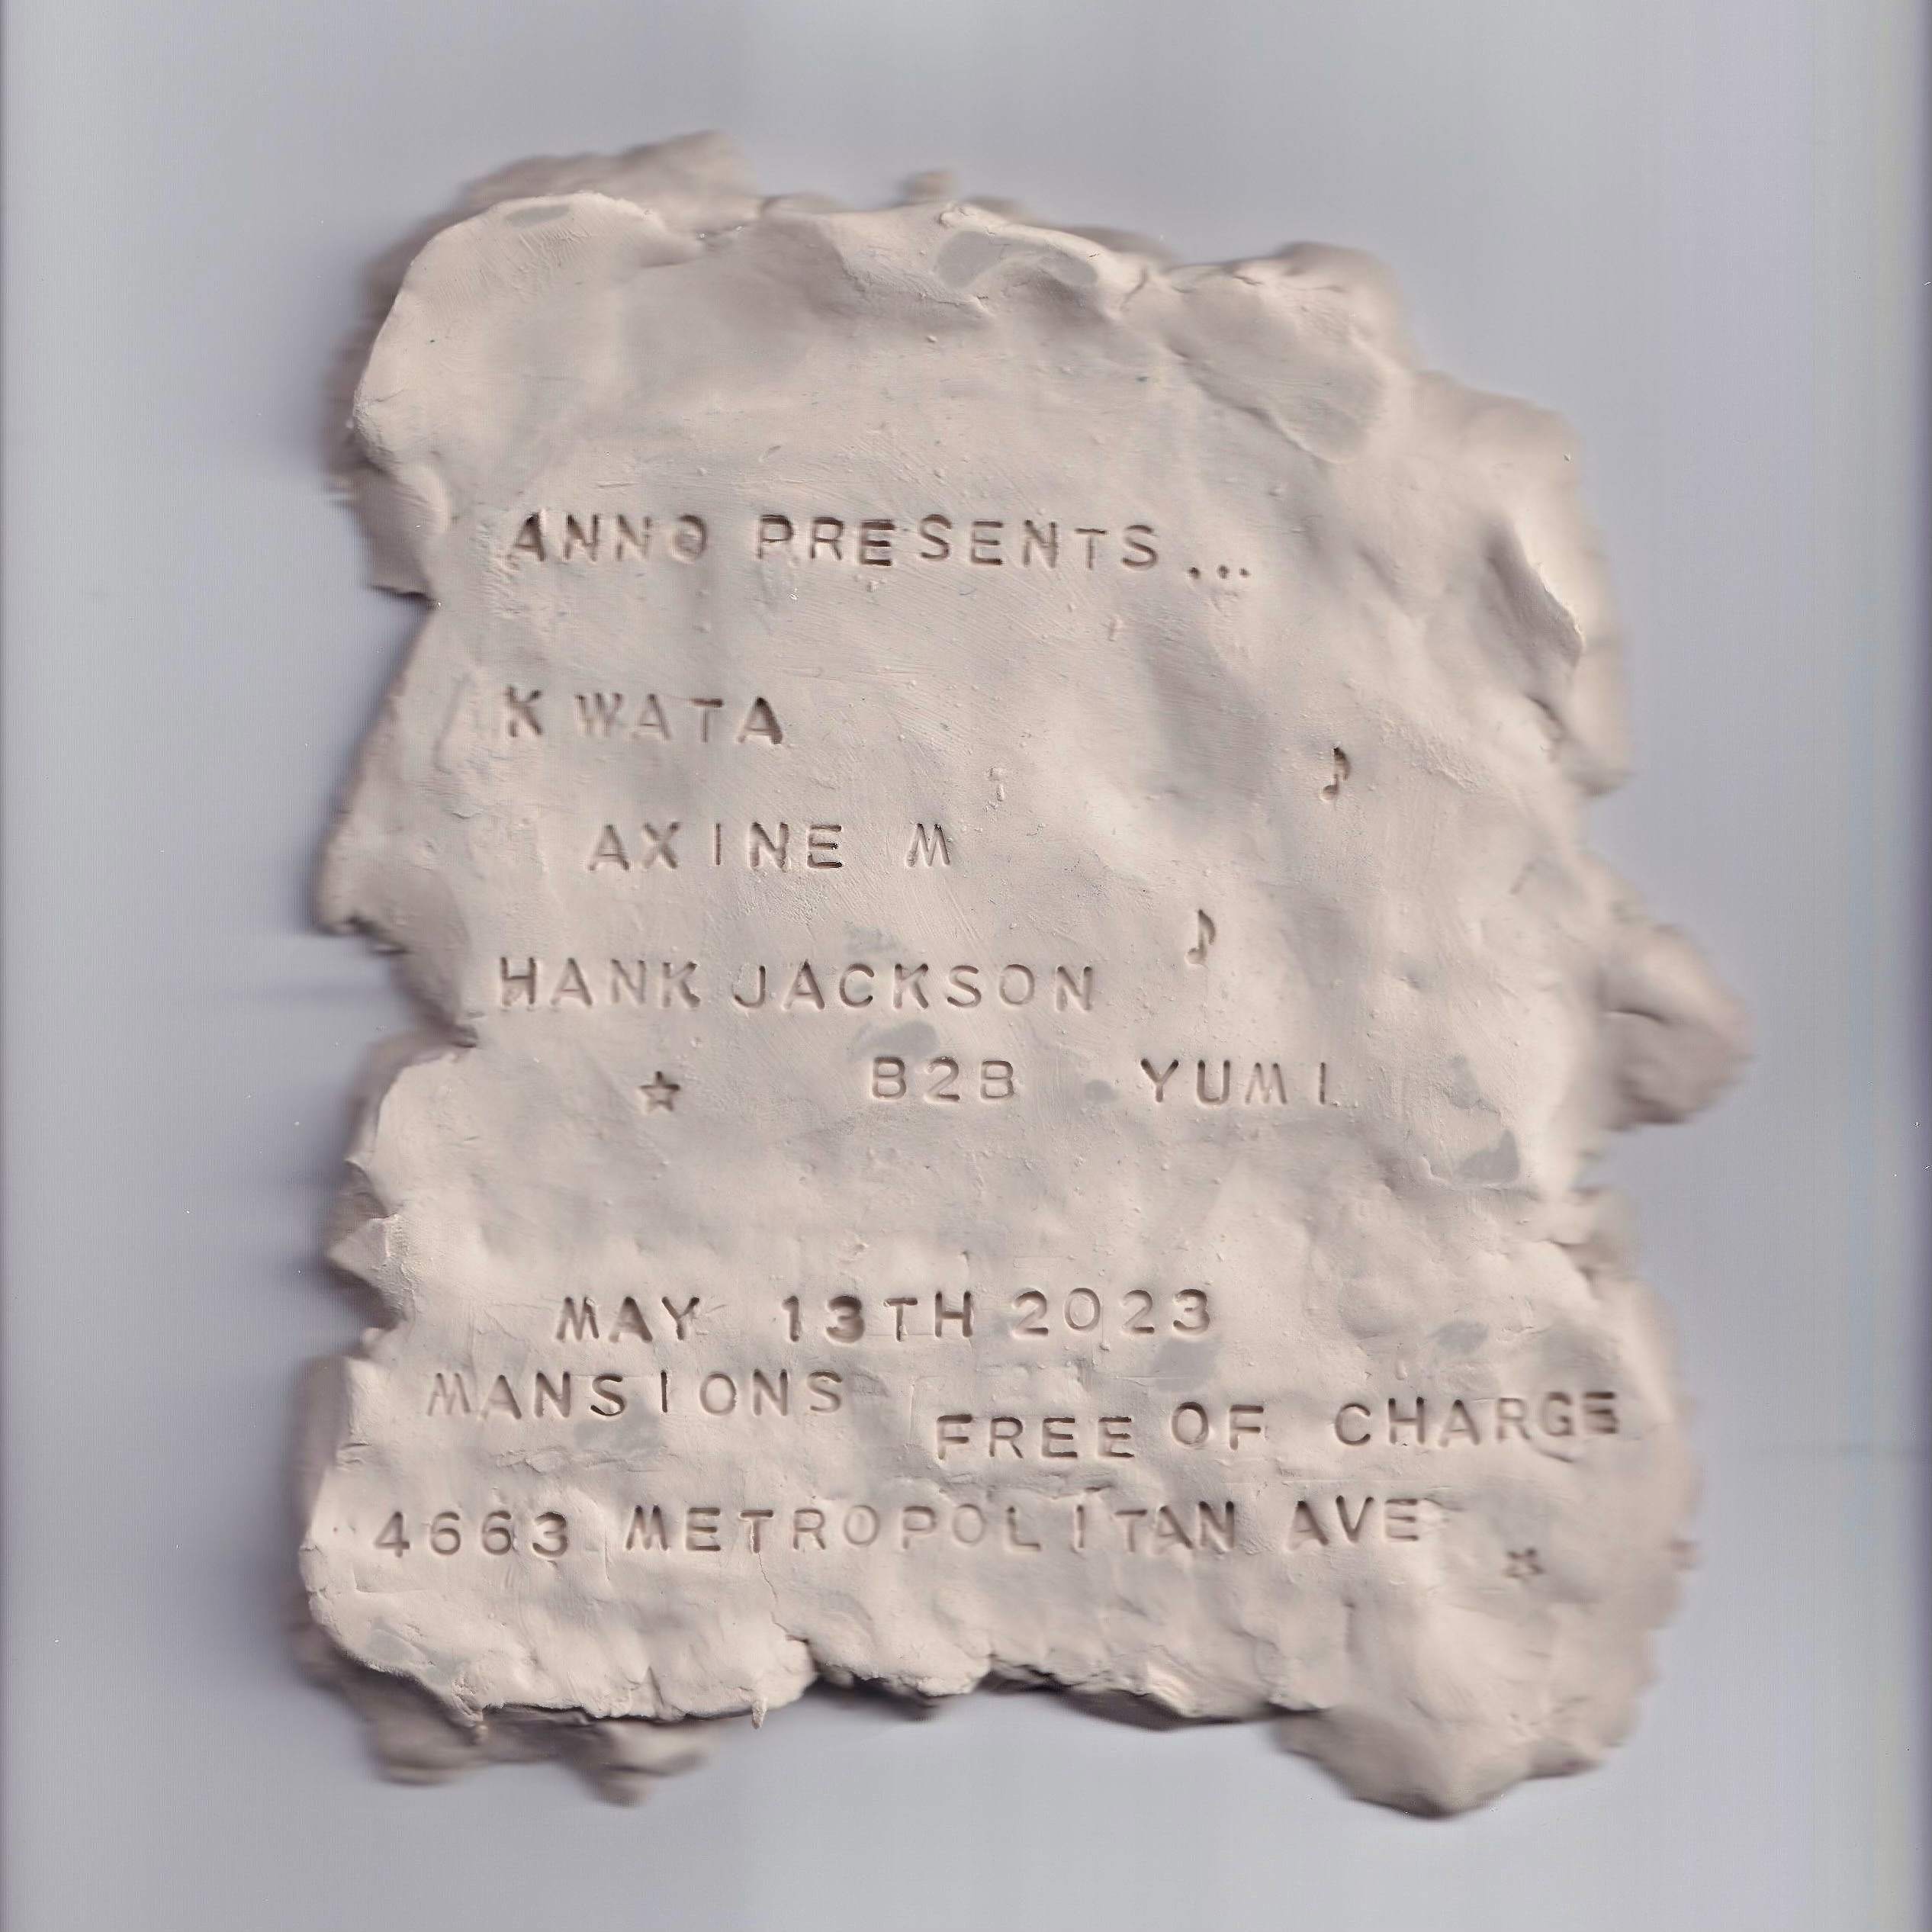 ANNO PRESENTS...
KWATA
AXINE M
HANK JACKSON
B2B YUMI
MAY 13TH 2023
MANSIONS
FREE OF CHARGE
4663 METROPOLITAN AVE